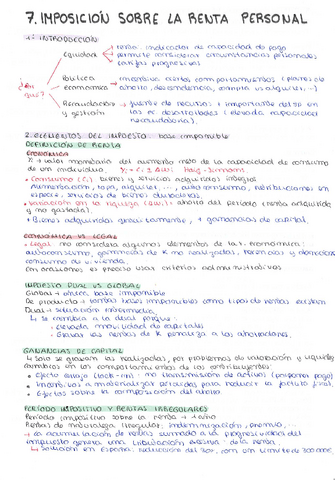 7. IMPOSICIÓN SOBRE LA RENTA PERSONAL
1. INTRODUCCIÓN
¿Por qué?
Equidad
renta: indicador de capacidad de pago
permite considerar circunstancias personales
tarifas progresivas
Política económica
incentiva ciertos comportamientos (planes de ahorro, descendencia, compra vs alquiler...)
Recaudación y gestión
fuente de recursos + importante del SP en las ec. desarrolladas (elevada capacidad recaudatoria)
2. ELEMENTOS DEL IMPUESTO: base imponible
DEFINICIÓN DE RENTA
ECONÓMICA
R = valor monetario del aumento neto de la capacidad de consumo
de un individuo. Haig-Simons.
• Consumo (C): bienes y servicios adquiridos íntegros
Alimentación, ropa, alquiler, ..., autoconsumo, retribuciones en
especie, servicios de bienes duraderos.
• Variación en la riqueza: ahorro del período (renta adquirida
y no gastada).
+ Bienes adquiridos gratuitamente, + ganancias de capital.
ECONÓMICA VS LEGAL
• Legal: no considera algunos elementos de la r. económica:
autoconsumo, ganancias de K no realizadas, herencias y donaciones
consumo de vivienda.
En ocasiones es preciso usar criterios administrativos
IMPUESTO DUAL VS GLOBAL
Global → única base imponible
De producto → tantas bases imponibles como tipos de rentas existen
Dual → situación intermedia
↳ Se cambia a la dual porque:
• elevada movilidad de capitales
• Gravar las rentas de K penaliza a los ahorradores.
GANANCIAS DE CAPITAL
↳ Solo se gravan las realizadas, por problemas de valoración y liquidez
cambios en los comportamientos de los contribuyentes:
• Efecto cerrojo (lock-in): no transmisión de activos (posponer pago)
• Incentivos a materializar pérdidas para reducir la factura fiscal.
• Efectos sobre la composición del ahorro
PERÍODO IMPOSITIVO Y RENTAS IRREGULARES
Período impositivo sobre la renta → 1 año
Rentas de naturaleza irregular: indemnización, premio, ...
↳ La acumulación de rentas sumado a la progresividad del
impuesto genera una tributación excesiva de la renta.
↳ Solución en España: reducción del 30%, con un límite de 300.000€.